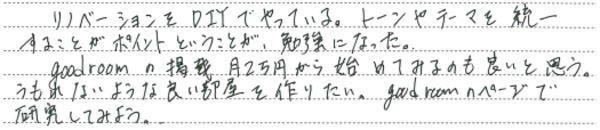 リノベーションをDIYでやっている。トーンやテーマを統一
することがポイントということが、勉強になった。
goodroomの掲載 月2万円から始めてみるのも良いと思う。
うもれないような良い部屋を作りたい。goodroomのページで
研究してみよう。